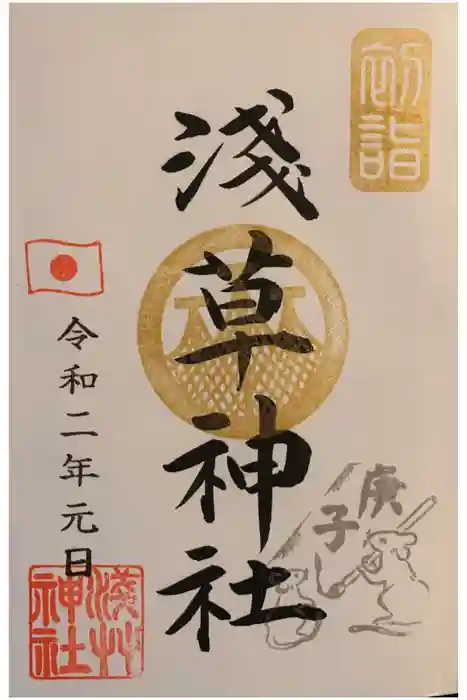 初詣
淺草神社
庚子
令和二年元日
淺草
神社